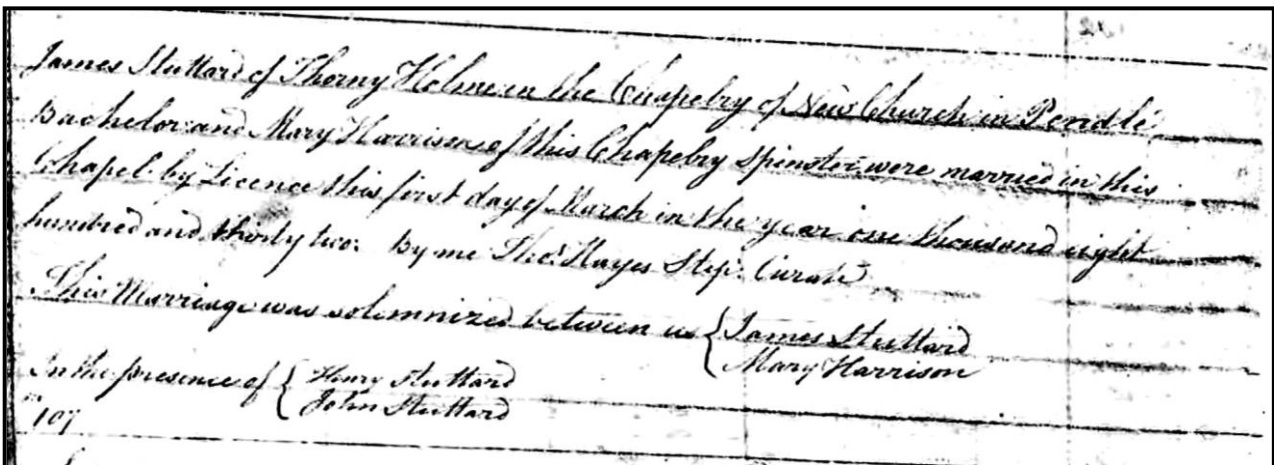 James Stuttard of Thorny Holme in the Chapelry of New Church in Pendle
Bachelor and Mary Harrison of this Chapelry Spinster were married in this
Chapel by Licence this first day of March in the year one thousand eight
hundred and thirty two. By me Thos. Hayes Stip. Curate
This Marriage was solemnized between us { James Stuttard
Mary Harrison
In the presence of { Henry Stuttard
John Stuttard
No 107